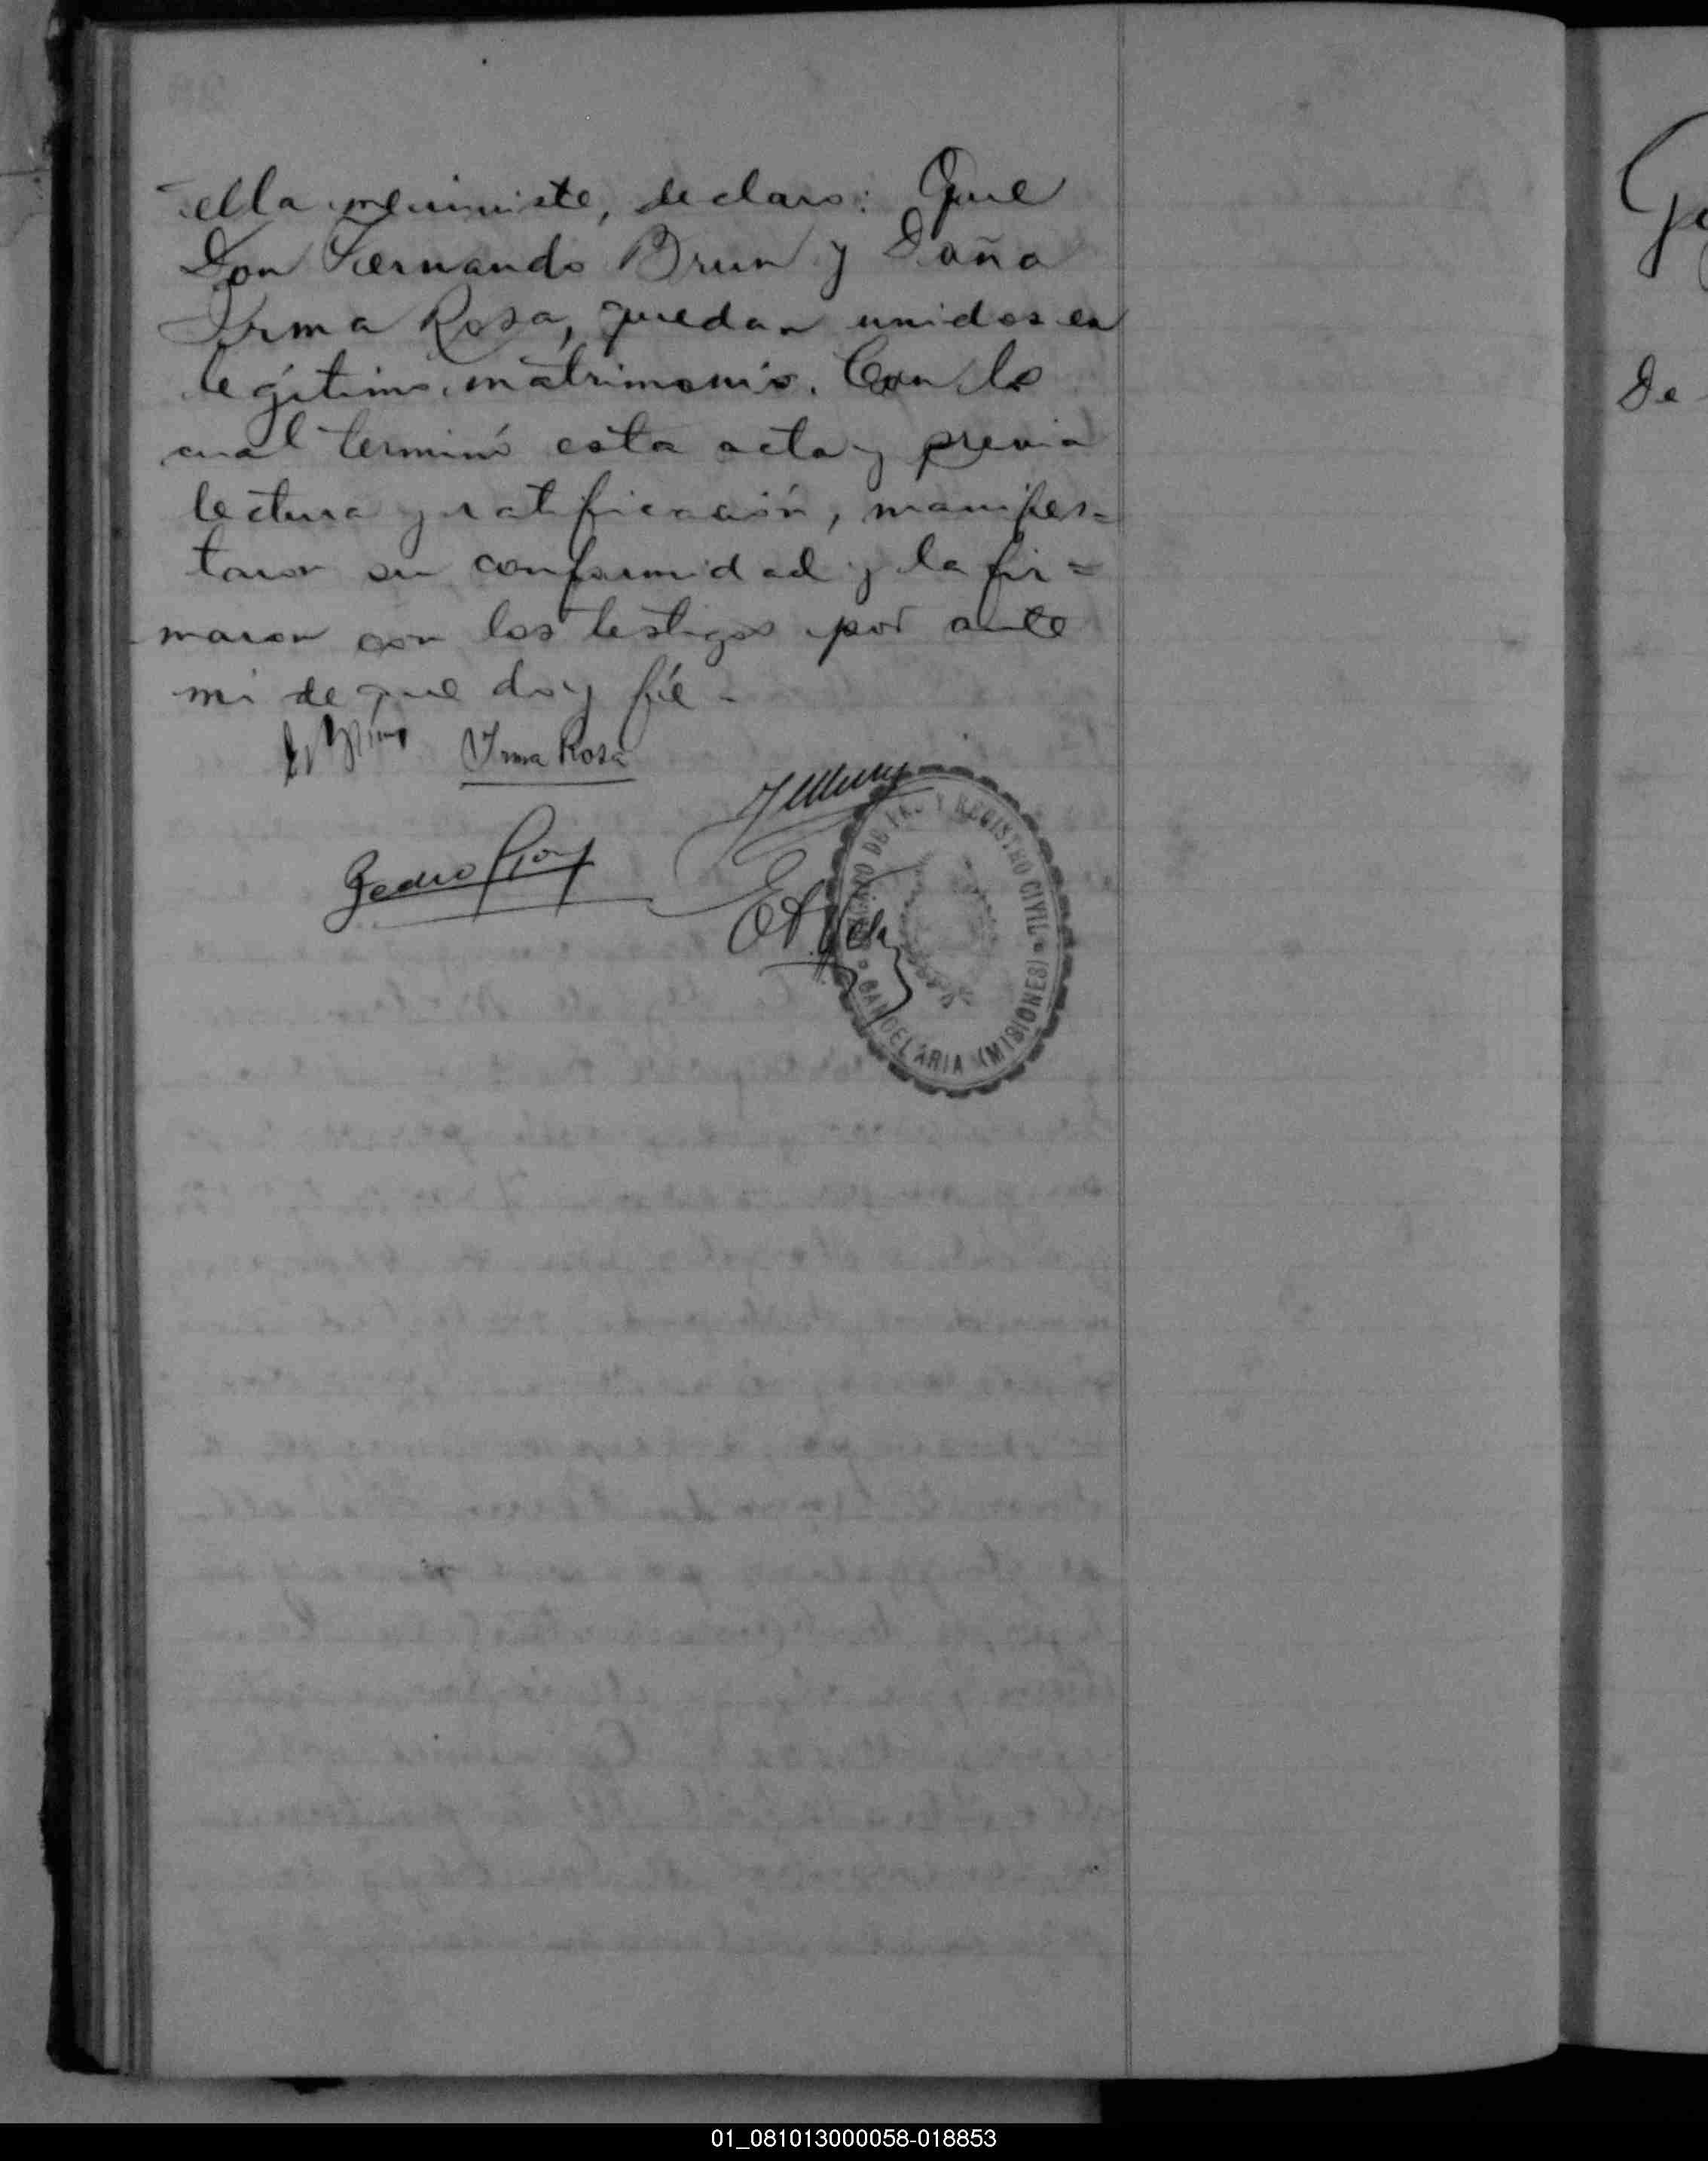 ella me inviste, declaro: Que
Don Fernando Brun y Doña
Irma Rosa, quedan unidos en
legítimo matrimonio. Con lo
cual terminó esta acta y previa
lectura y ratificación, manifes=
taron su conformidad y la fir=
maron con los testigos por ante
mi de que doy fé -
Irma Rosa
Pedro
DE PAZ Y REGISTRO CIVIL
CANDELARIA (MISIONES)
Ge
De
01_081013000058-018853